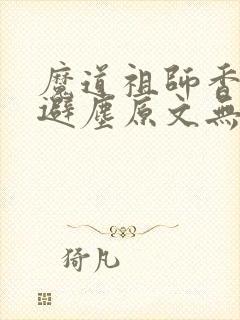 魔道祖師香
避塵原文無
猗凡